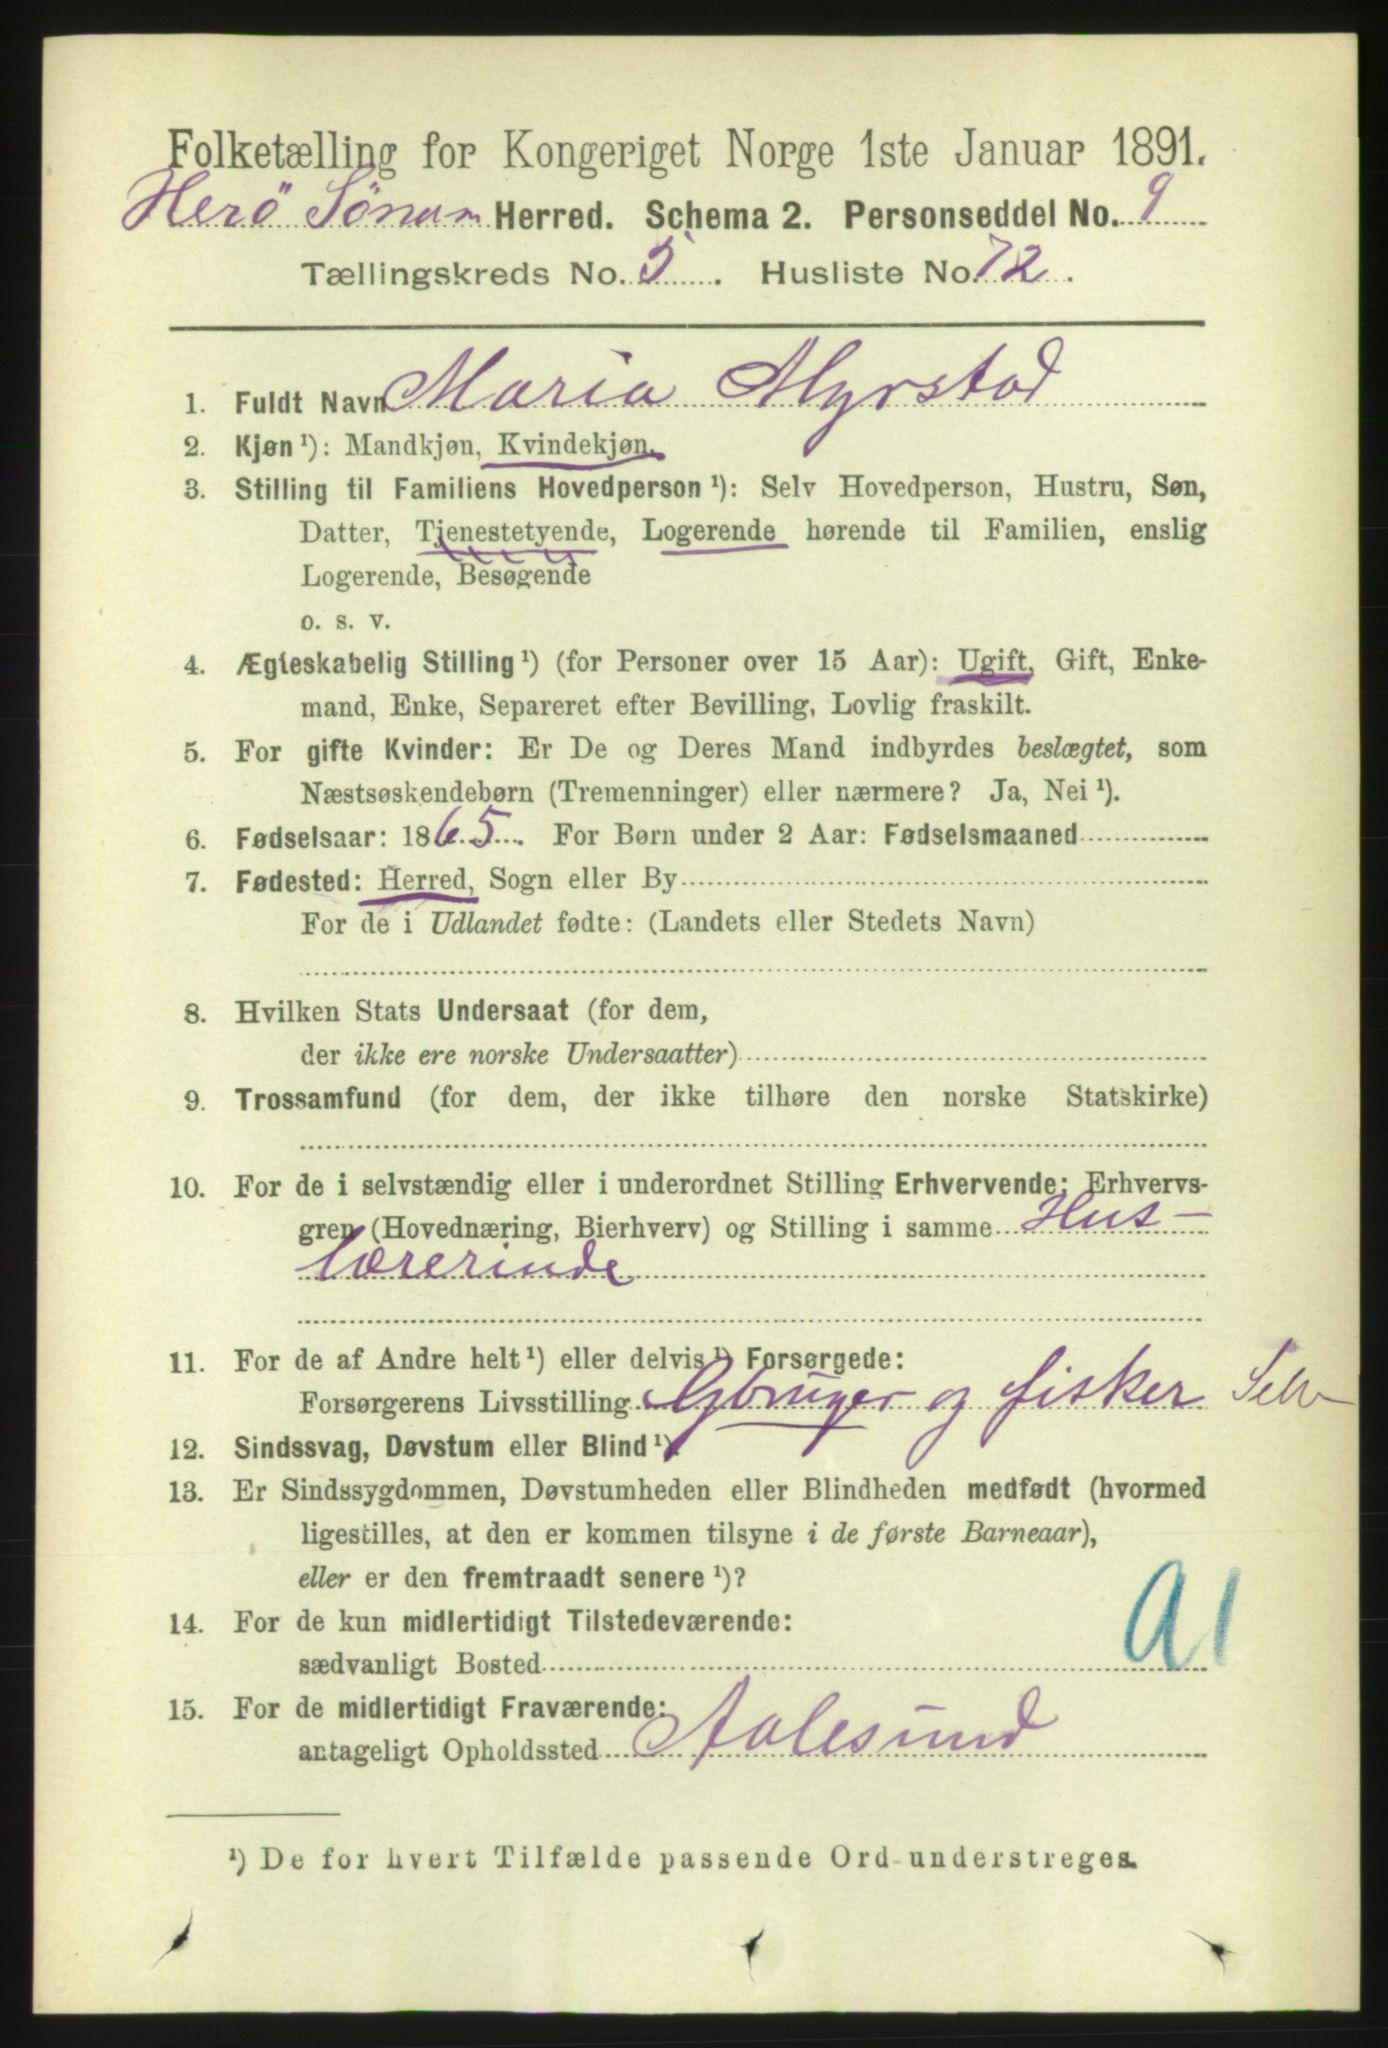 Folketælling for Kongeriget Norge 1ste Januar 1891.
Herö Sönum Herred. Schema 2. Personseddel No. 9
Tællingskreds No. 5. Husliste No. 72.
1. Fuldt Navn Maria Myrstad
2. Kjøn¹): Mandkjøn, Kvindekjøn.
3. Stilling til Familiens Hovedperson¹): Selv Hovedperson, Hustru, Søn,
Datter, Tjenestetyende, Logerende hørende til Familien, enslig
Logerende, Besøgende
o. s. v.
4. Ægteskabelig Stilling¹) (for Personer over 15 Aar): Ugift, Gift, Enke-
mand, Enke, Separeret efter Bevilling, Lovlig fraskilt.
5. For gifte Kvinder: Er De og Deres Mand indbyrdes beslægtet, som
Næstsøskendebørn (Tremenninger) eller nærmere? Ja, Nei¹).
6. Fødselsaar: 1865. For Børn under 2 Aar: Fødselsmaaned
7. Fødested: Herred, Sogn eller By
For de i Udlandet fødte: (Landets eller Stedets Navn)
8. Hvilken Stats Undersaat (for dem,
der ikke ere norske Undersaatter)
9. Trossamfund (for dem, der ikke tilhøre den norske Statskirke)
10. For de i selvstændig eller i underordnet Stilling Erhvervende: Erhvervs-
gren (Hovednæring, Bierhverv) og Stilling i samme Hus-
lærerinde
11. For de af Andre helt¹) eller delvis¹) Forsørgede:
Forsørgerens Livsstilling Gbruger og fisker Selv
12. Sindssvag, Døvstum eller Blind¹).
13. Er Sindssygdommen, Døvstumheden eller Blindheden medfødt (hvormed
ligestilles, at den er kommen tilsyne i de første Barneaar),
eller er den fremtraadt senere¹)?
14. For de kun midlertidigt Tilstedeværende:
sædvanligt Bosted
A1
15. For de midlertidigt Fraværende:
antageligt Opholdssted Aalesund
¹) De for hvert Tilfælde passende Ord understreges.